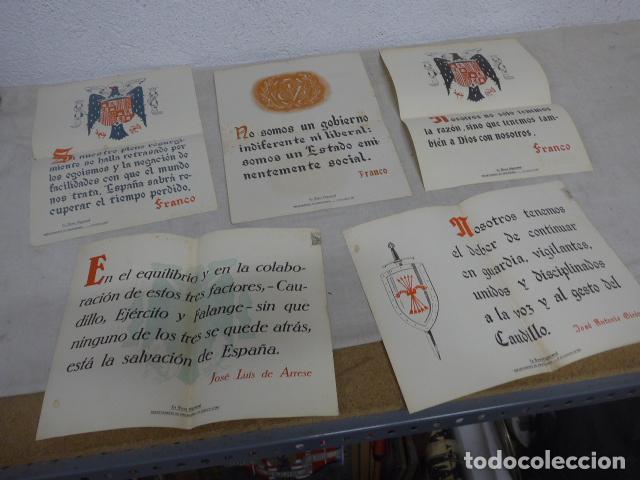 Si nuestro pleno resurgi-
miento se halla retrasado por
los egoismos y la negación de
facilidades con que el mundo
nos trata, España sabrá re-
cuperar el tiempo perdido.
Franco
No somos un gobierno
indiferente ni liberal:
somos un Estado emi-
nentemente social.
Franco
Nosotros no sólo tenemos
la razón, sino que tenemos tam-
bién a Dios con nosotros.
Franco
En el equilibrio y en la colabo-
ración de estos tres factores,-Cau-
dillo, Ejército y Falange-sin que
ninguno de los tres se quede atrás,
está la salvación de España.
José Luis de Arrese
Nosotros tenemos
el deber de continuar
en guardia, vigilantes,
unidos y disciplinados
a la voz y al gesto del
Caudillo.
José Antonio
todocoleccion.net